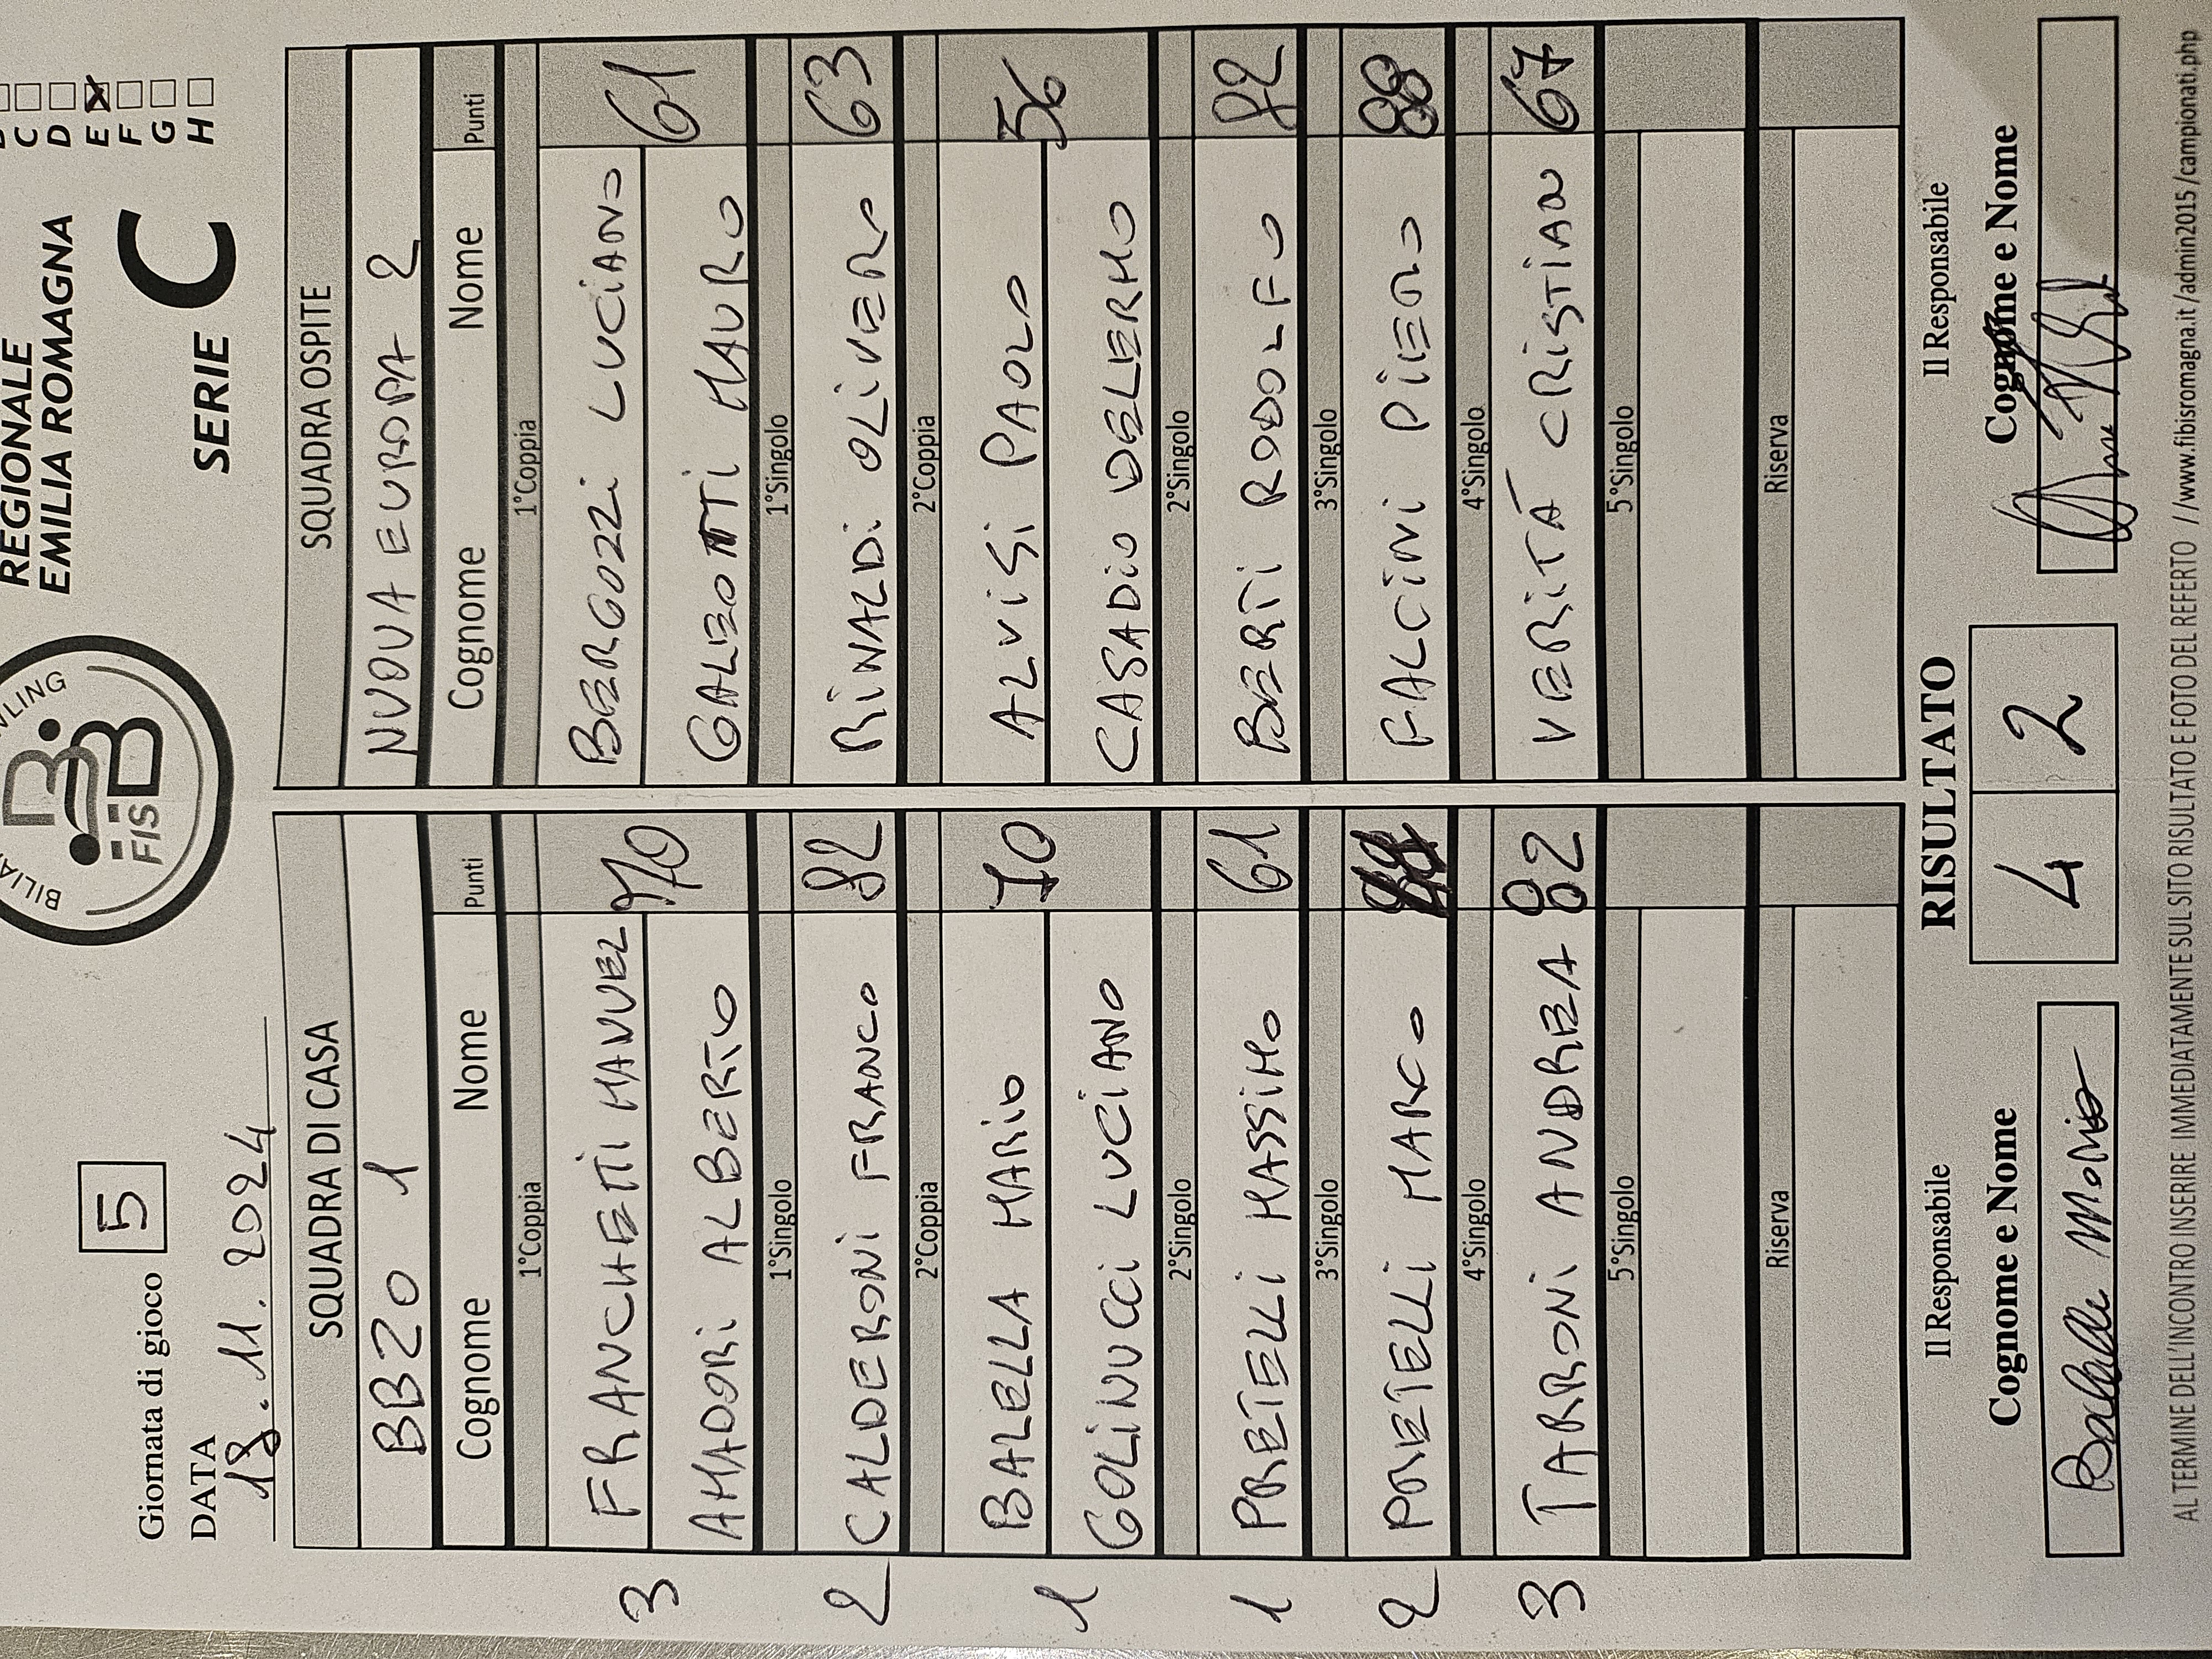 REGIONALE
EMILIA ROMAGNA
SERIE C
C
D
E
F
G
H
FISBB
Giornata di gioco 5
DATA
18.11.2024
SQUADRA DI CASA SQUADRA OSPITE
BBZO 1 NUOVA EUROPA 2
Cognome Nome Punti Cognome Nome Punti
1°Coppia 1°Coppia
3 FRANCHETTI MANUEL 70 BERGOZZI LUCIANO 61
AMADORI ALBERTO GALEOTTI MAURO
1°Singolo 1°Singolo
2 CALDERONI FRANCO 82 RINALDI OLIVERO 63
2°Coppia 2°Coppia
1 BALELLA MARIO 70 ALVISI PAOLO 56
GOLINUCCI LUCIANO CASADIO DELERMO
2°Singolo 2°Singolo
1 PRETELLI MASSIMO 61 BERTI RODOLFO 82
3°Singolo 3°Singolo
2 PRETELLI MARCO FALCINI PIERO 88
4°Singolo 4°Singolo
3 TARRONI ANDREA 82 VERITÁ CRISTIAN 67
5°Singolo 5°Singolo
Riserva Riserva
Il Responsabile RISULTATO Il Responsabile
Cognome e Nome 4 2 Cognome e Nome
Balella Mario
AL TERMINE DELL'INCONTRO INSERIRE IMMEDIATAMENTE SUL SITO RISULTATO E FOTO DEL REFERTO //www.fibisromagna.it/admin2015/campionati.php